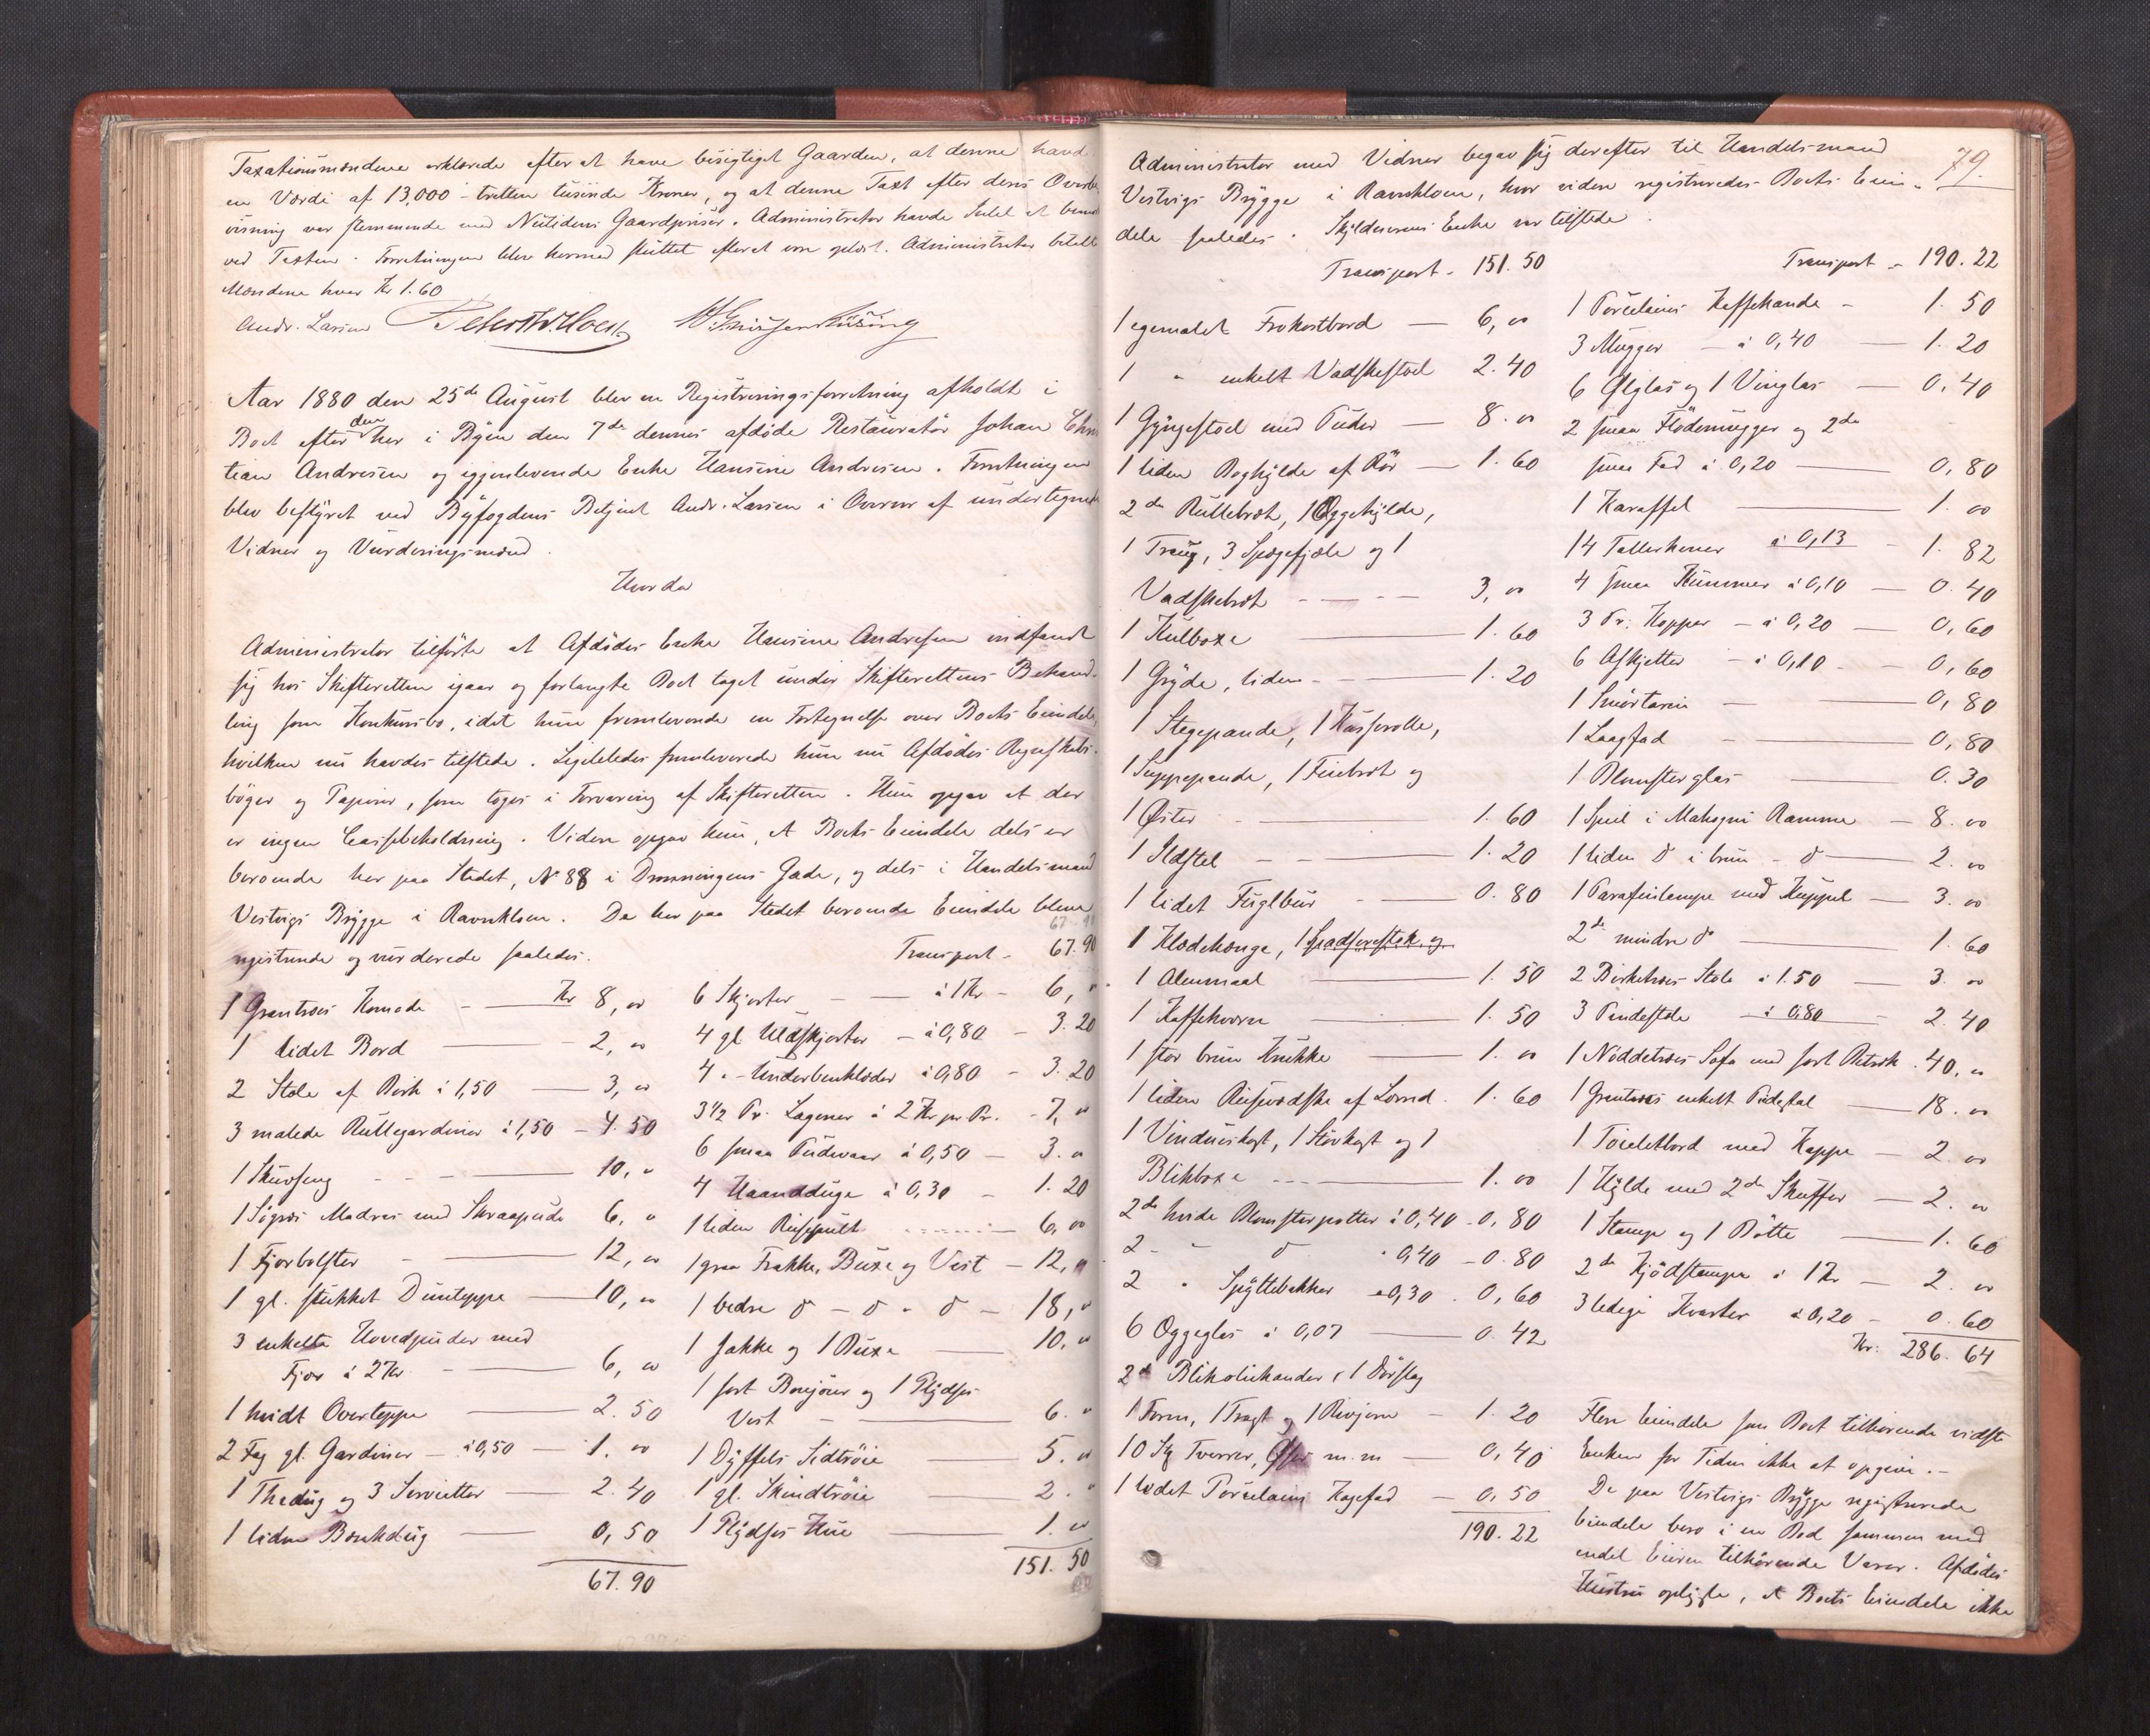 Taxationsmændene erklærede efter at have besigtiget Gaarden, at denne havd
en Værdi af 13,000 - tretten tusinde Kroner, og at denne Taxt efter deres Overbe
visning var stemmende med Nutidens Gaardpriser. Administrator havde Intet at bem
ved Taxten. Forretningen blev hermed sluttet efterat være oplæst. Administrator betalte
Mændene hver Kr 1.60
Andr. Larsen
Aar 1880 den 25de August blev en Registreringsforretning afholdt i
Boet efter den her i Byen den 7de dennes afdøde Restauratør Johan Chri
tian Andresen og igjenlevende Enke Hansine Andresen. Forretningen
blev bestyret ved Byfogdens Betjent Andr. Larsen i Overvær af undertegnede
Vidner og Vurderingsmænd.
Hvorda
Administrator tilførte at Afdødes Enke Hansine Andresen indfandt
sig hos Skifteretten igaar og forlangte Boet taget under Skifterettens Behand-
ling som Konkursbo, idet hun fremleverede en Fortegnelse over Boets Eiendele,
hvilken nu havdes tilstede. Ligeledes fremleverede hun nu Afdødes Regnskabs-
bøger og Papirer, som toges i Forvaring af Skifteretten. Hun opgav at der
er ingen Cassebeholdning. Videre opgav hun, at Boets Eiendele dels er
beroende her paa Stedet, No 88 i Dronningens Gade, og dels i Handelsmand
Vestvigs Brygge i Ravnkloen. De her paa Stedet beroende Eiendele bleve
registrerede og vurderede saaledes.
1 Grantræs Komode - Kr 8, 00
1 lidet Bord - 2, 00
2 Stole af Birk à 1,50 - 3, 00
3 malede Rullegardiner à 1,50 - 4. 50
1 Skuvseng - 10, "
1 Søgræs Madras med Skraapude 6, "
1 Fjærbolster - 12, 00
1 gl. stukket Dunteppe - 10, 00
3 enkelte Hovedpuder med
Fjær à 2 Kr. - 6, 00
1 hvidt Overteppe - 2. 50
2 Fag gl. Gardiner - à 0,50 - 1. 00
1 Thedug og 3 Servietter - 2. 40
1 liden Borddug - 0, 50
67. 90
Transport - 67. 90
6 Skjorter - à 1 Kr - 6, "
4 gl Uldskjorter - à 0,80 - 3. 20
4 " - Underbenklæder à 0,80 - 3. 20
3 1/2 Pr. Lagener à 2 Kr pr Pr. - 7, "
6 smaa Pudevaar à 0,50 - 3. "
4 Haandduge à 0,30 - 1. 20
1 liden Reisepult - 6, 00
1 graa Frakke, Buxe og Vest - 12, "
1 bedre do - do - do - 18, "
1 Jakke og 1 Buxe - 10, "
1 sort Bonjour og 1 Plydses
Vest - 6. "
1 Dyffels Sidtrøie - 5. "
1 gl. Skindtrøie - 2. "
1 Plydses Hue - 1. 00
151. 50
79.
Administrator med Vidner begav sig derefter til Handelsmand
Vestvigs Brygge i Ravnkloen, hvor videre registreredes Boets Eien-
dele saaledes. Skyldnerens Enke var tilstede.
Transport - 151. 50
1 egemalet Frokostbord - 6, 00
1 " enkelt Vadskestoel 2. 40
1 Gyngestoel med Puder - 8. 00
1 liden Boghylde af Rør - 1. 60
2de Rullebræt, 1 Æggehylde,
1 Traug, 3 Spegefjæle og 1
Vadskebræt - 3, 00
1 Kulboxe - 1. 60
1 Gryde, liden - 1. 20
1 Stegepande, 1 Kasserolle,
1 Suppepande, 1 Finbræt og
1 Øster - 1. 60
1 Ildstel - 1. 20
1 lidet Fuglbur - 0. 80
1 Klædehænge, 1 Spadserestok og
1 Alenmaal - 1. 50
1 Kaffekværn - 1. 50
1 stor brun Krukke - 1. 00
1 liden Reisevadske af Lærred - 1. 60
1 Vinduskost, 1 Støvkost og 1
Blikboxe - 1. 00
2de hvide Blomsterpotter à 0,40 - 0, 80
2 - " do " 0,40 - 0. 80
2 " Spyttebakker à 0,30 - 0, 60
6 Æggeglas à 0,07 - 0. 42
2de Blikoliekander, 1 Dørslag
1 Form, 1 Tragt og 1 Rivjern - 1. 20
10 Stk Tverrer, Øser m.m - 0, 40
1 lodet Porcelains Kagefad - 0, 50
190. 22
Transport - 190. 22
1 Porcelains Kaffekande - 1. 50
3 Mugger - à 0,40 - 1. 20
6 Ølglas og 1 Vinglas - 0, 40
2 smaa Flødemugger og 2de
smaa Fad à 0,20 - 0, 80
1 Karaffel - 1. 00
14 Tallerkener à 0,13 - 1. 82
4 smaa Kummer à 0,10 - 0. 40
3 Pr. Kopper - à 0,20 - 0, 60
6 Asjetter - à 0,10 - 0, 60
1 Smørtærin - 0, 80
1 Laagfad - 0, 80
1 Blomsterglas - 0. 30
1 Speil i Mahogni Ramme - 8. 00
1 liden do i brun - do - 2. 00
1 Parafinlampe med Kuppel - 3. 00
2de mindre do - 1. 60
2 Birketræs Stole à 1.50 - 3. 00
3 Pindestole - à 0,80 - 2. 40
1 Nøddetræs Sofa med sort Betræk - 40, "
1 Grantræs enkelt Pidestal - 18. 00
1 Toiletbord med Kappe - 2 00
1 Hylde med 2de Skuffer - 2. 00
1 Stamp og 1 Bøtte - 1. 60
2de Kjødstampe à 1 Kr - 2. 00
3 ledige Kvarter à 0,20 - 0. 60
Kr: 286. 64
Flere Eiendele som Boet tilhørende vidste
Enken for Tiden ikke at opgive. -
De paa Vestvigs Brygge registrerede
Eiendele bero i en Bod sammen med
endel Eieren tilhørende Varer. Afdødes
Hustru oplyste, at Boets Eiendele ikke